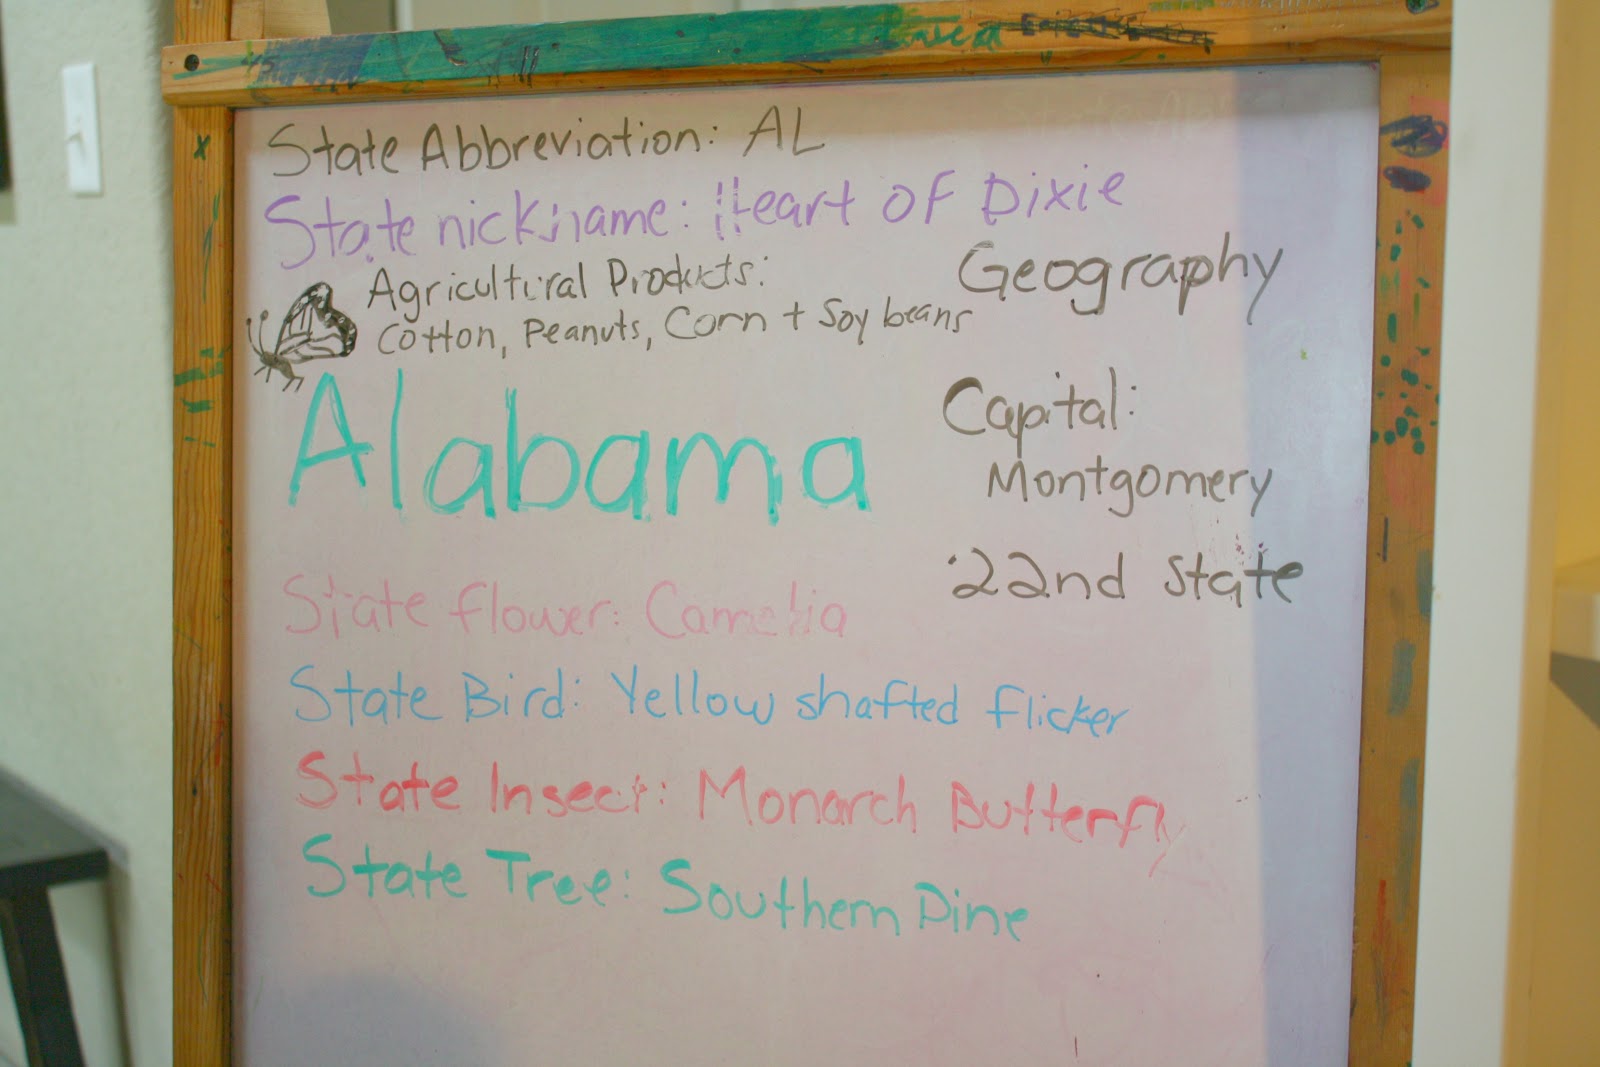 State Abbreviation: AL
State nickname: Heart of Dixie
Agricultural Products:
Cotton, Peanuts, Corn + Soy beans
Geography
Alabama
Capital:
Montgomery
22nd State
State flower: Camelia
State Bird: Yellow shafted flicker
State Insect: Monarch Butterfly
State Tree: Southern Pine